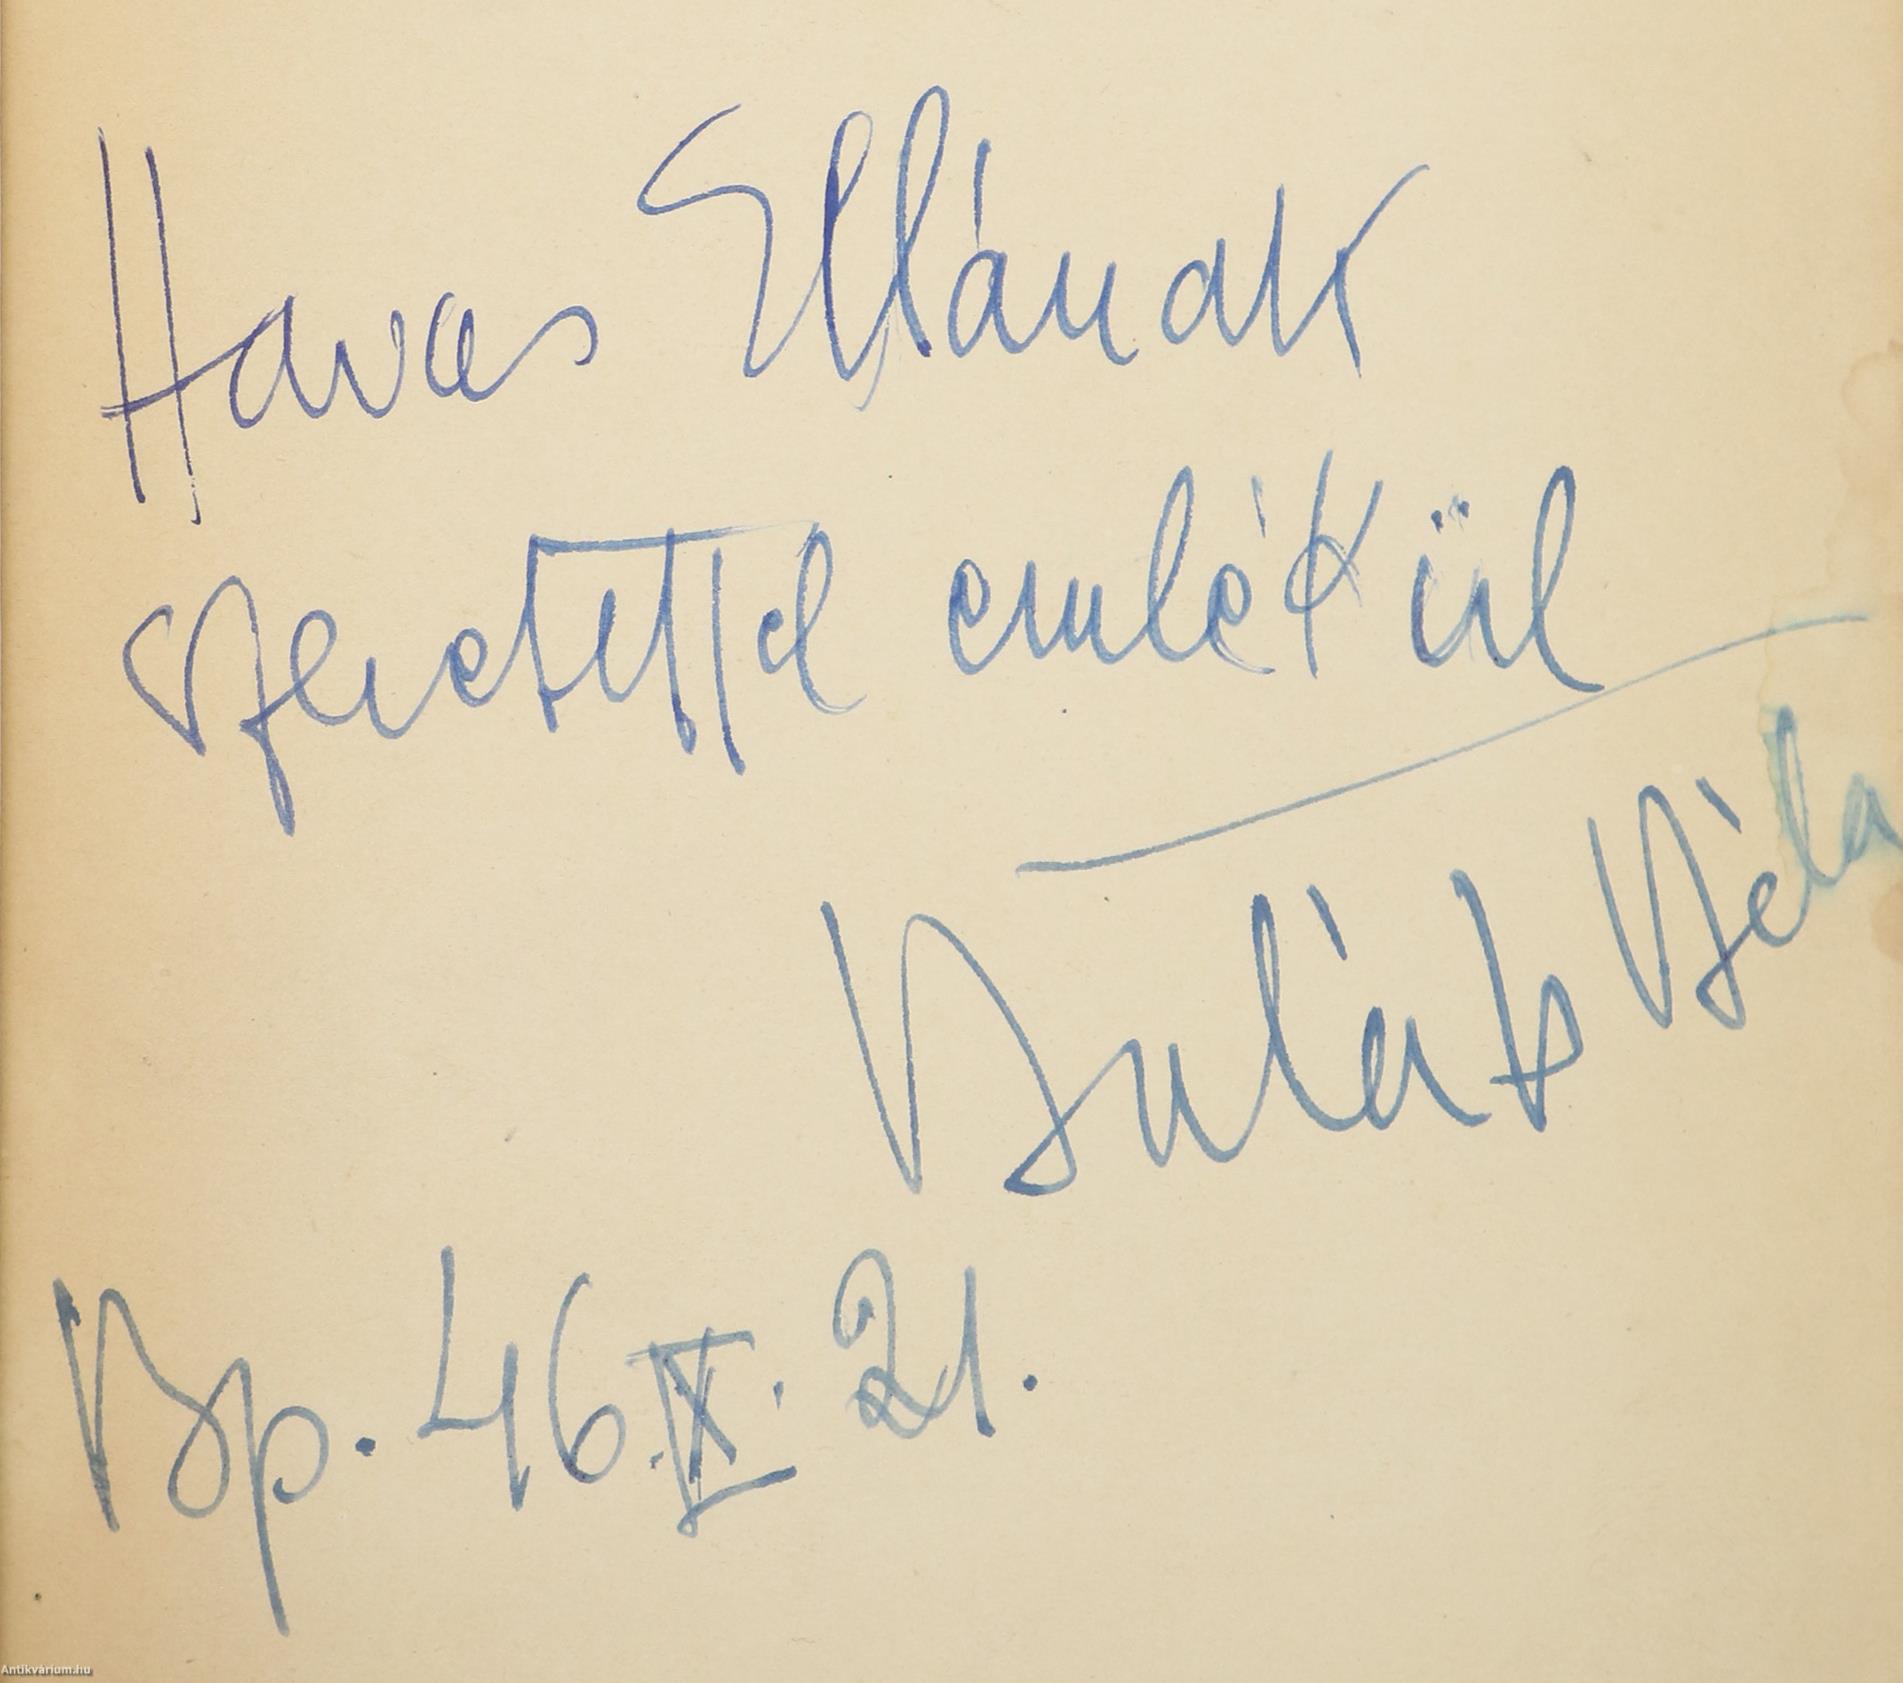 Havas Ellának
szeretettel emlékül
Balázs Béla
Bp. 46.X. 21.
Antikvárium.hu